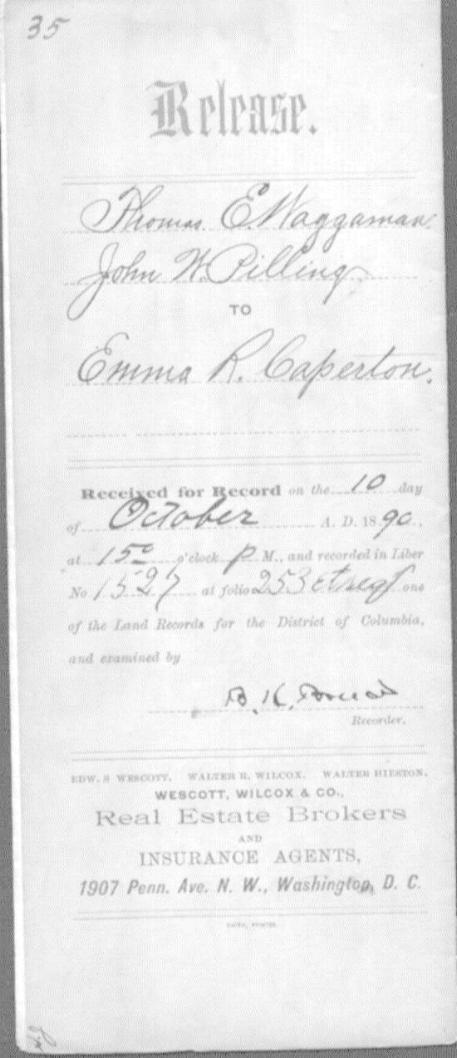 35
Release.
Thomas E. Waggaman
John W. Pilling
TO
Emma R. Caperton.
Received for Record on the 10 day
of October A. D. 1890,
at 1 50 o'clock P M., and recorded in Liber
No 1527 at folio 253 et seq one
of the Land Records for the District of Columbia,
and examined by
B. K. Bruce
Recorder.
EDW. S WESCOTT. WALTER R. WILCOX. WALTER HIESTON.
WESCOTT, WILCOX & CO.,
Real Estate Brokers
AND
INSURANCE AGENTS,
1907 Penn. Ave. N. W., Washington, D. C.